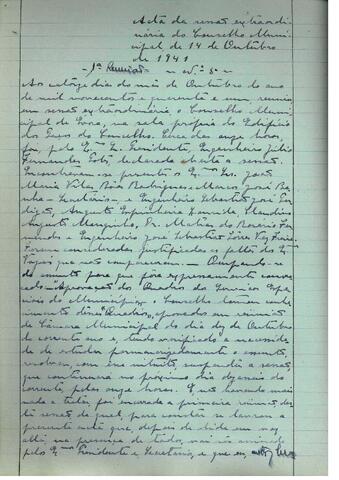 Acta da sessão extraordi-
nária do Conselho Muni-
cipal de 14 de Outubro
de 1941
1ª Reunião
Aos catorze dias do mês de Outubro do ano
de mil novecentos e quarenta e um, reuniu
em sessão extraordinária o Conselho Muni-
cipal de na sala própria do Edifício
dos Paços do Concelho. Cêrca das onze horas,
foi, pelo Exmo. Sr. Presidente, Engenheiro Júlio
Fernandes declarada aberta a sessão.
Encontravam-se presentes os Exmos. Srs. José
Maria Vilas Bôas Rodrigues Marcos, José
Secretários e Engenheiro Sebastião José
Augusto Espinheira
Augusto Dr. Matias do Rosário
e Engenheiro José Sebastião
Foram consideradas justificadas as faltas dos
Vogais que não compareceram. Ocupando-se
do assunto para que fôra expressamente convo-
cado Aprovação dos Quadros dos Serviços Espe-
ciais do Município, o Conselho tomou conhe-
cimento dêsses Quadros, aprovados em reunião
da Câmara Municipal do dia dez de Outubro
do corrente ano e, tendo verificado a necessida-
de de estudar pormenorizadamente o assunto,
resolveu, com êsse intuito, suspender a sessão,
que continuará no próximo dia dezasseis do
corrente, pelas onze horas. E, não havendo mais
nada a tratar, foi encerrada a primeira reunião des-
ta sessão da qual, para constar se lavrou a
presente acta que, depois de lida em voz
alta, na presença de todos, vai ser assinada
pelo Exmo. Presidente e Secretários, e que eu,